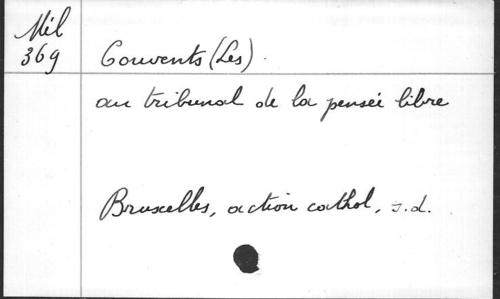 Mél
369
Couvents (Les).
au tribunal de la pensée libre
Bruxelles, action cathol, s.d.